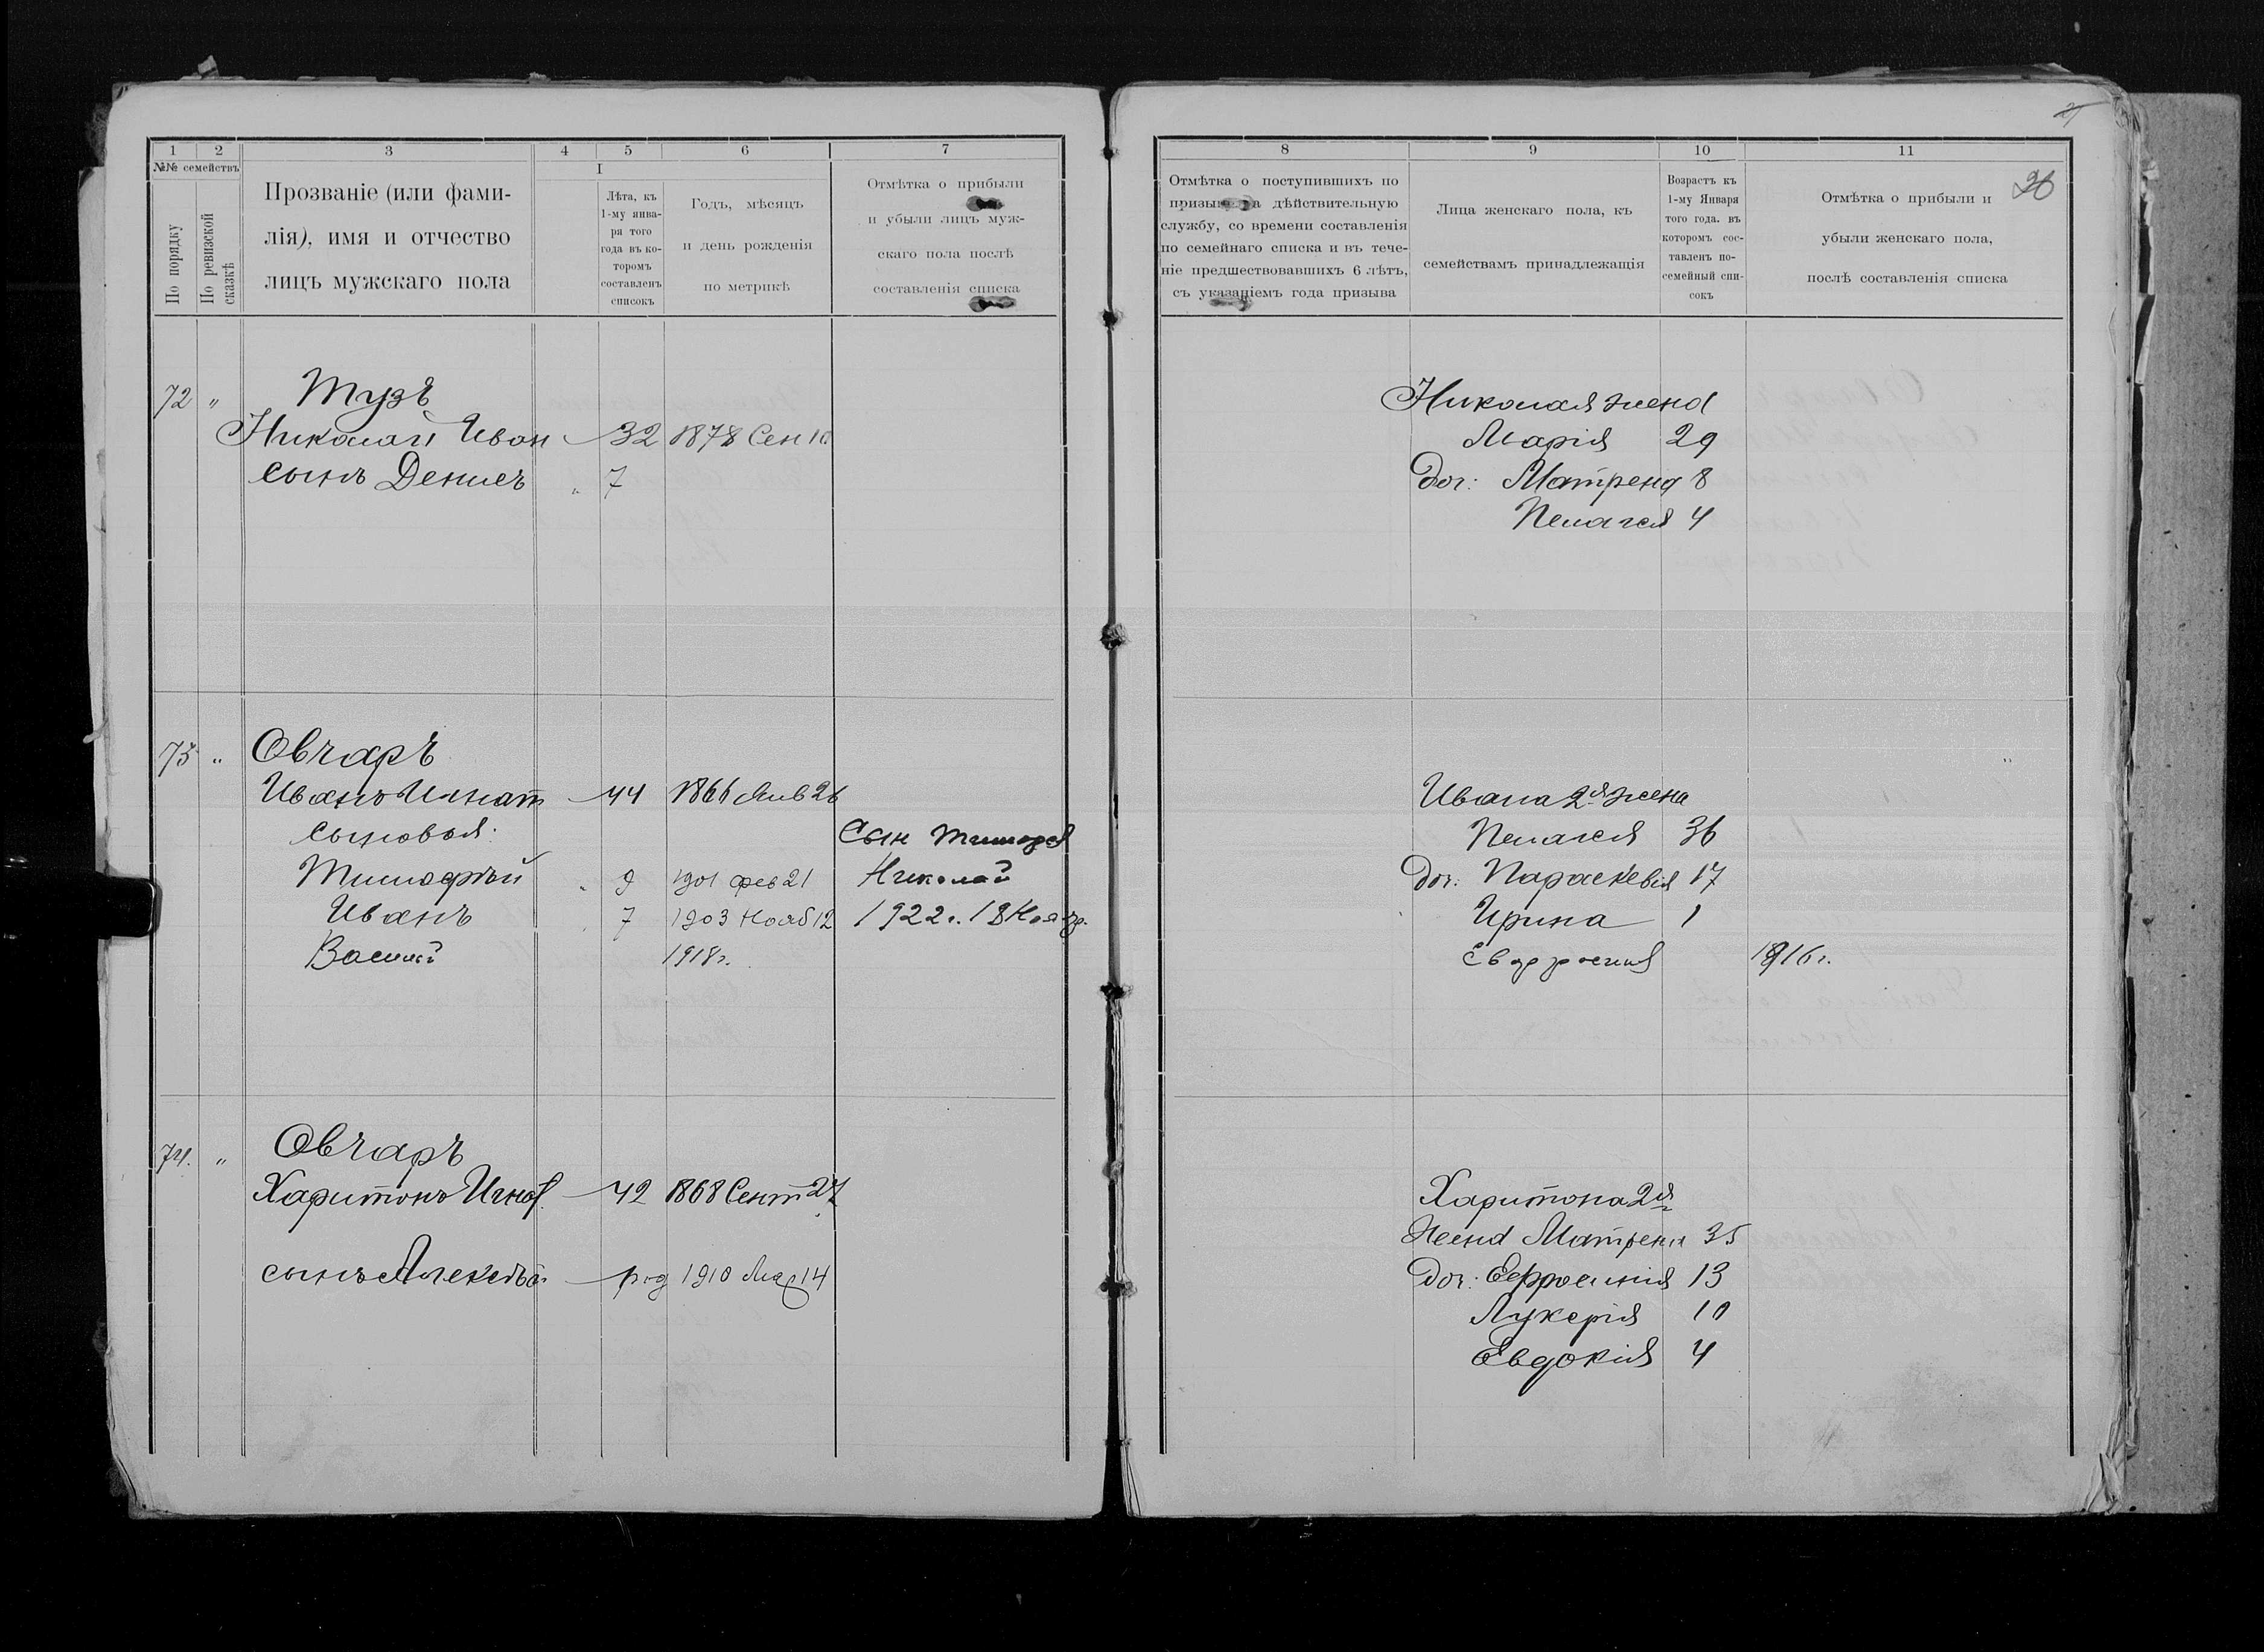 1 2 3 4 5 6 7
№№ семействъ
По порядку
По ревизской сказкѣ
Прозваніе (или фами-
лія), имя и отчество
лицъ мужскаго пола
I
Лѣта, къ
1-му янва-
ря того
года въ ко-
торомъ
составленъ
списокъ
Годъ, мѣсяцъ
и день рожденія
по метрикѣ
Отмѣтка о прибыли
и убыли лицъ муж-
скаго пола послѣ
составленія списка
72 " Тузъ
Николай Иван 32 1878 Сен 10
сынъ Денисъ " 7
73 " Овчаръ
Иванъ Игнат 44 1866 Янв 26
сыновья: Сын Тимофея
Тимофѣй " 9 1901 фев 21 Николай
Иванъ " 7 1903 Нояб 12 1922 г. 18 Ноябр.
Василий 1918 г.
74. " Овчаръ
Харитонъ Игнат 42 1868 Сент 27
сынъ Алексѣй род 1910 Мар 14
8 9 10 11
Отмѣтка о поступившихъ по
призыву на дѣйствительную
службу, со времени составленія
по семейнаго списка и въ тече-
ніе предшествовавшихъ 6 лѣтъ,
съ указаніемъ года призыва
Лица женскаго пола, къ
семействамъ принадлежащія
Возрастъ къ
1-му Января
того года. въ
которомъ сос-
тавленъ по-
семейный спи-
сокъ
Отмѣтка о прибыли и
убыли женскаго пола,
послѣ составленія списка
Николая жена
Марія 29
Доч: Матрена 8
Пелагея 4
Ивана 2я жена
Пелагея 36
Доч: Параскевія 17
Ирина 1
Евфросиния 1916 г.
Харитона 2я
Жена Матрена 35
Доч: Ефросинія 13
Лукерія 10
Евдокія 4